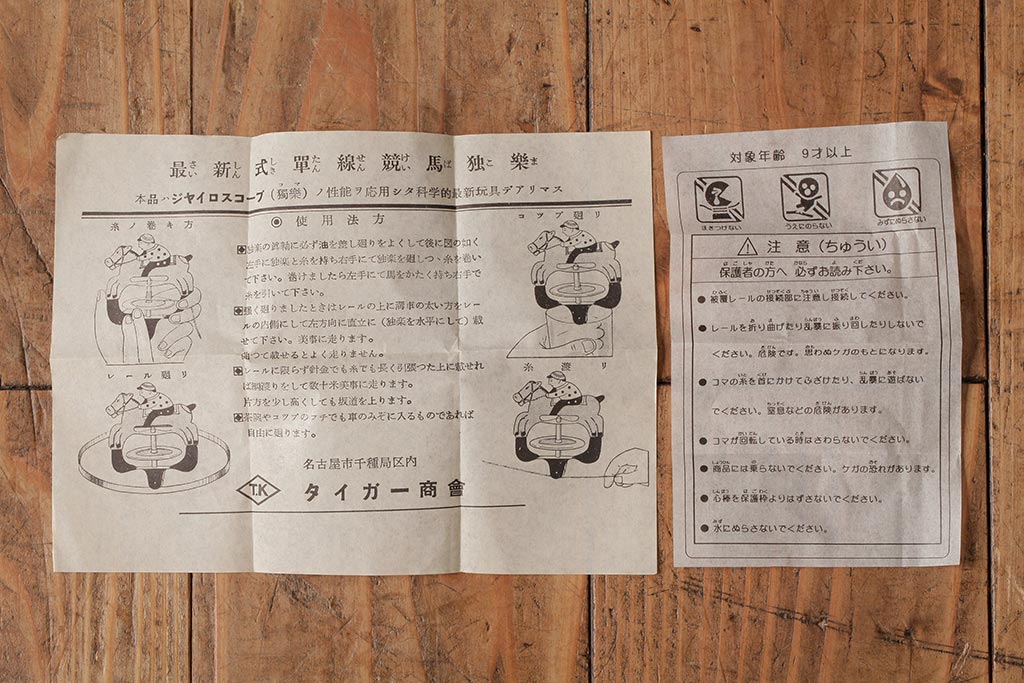 最新式單線競馬独樂
さいしんしきたんせんけいばこま
本品ハジヤイロスコープ(獨樂)ノ性能ヲ応用シタ科学的最新玩具デアリマス
コマ
糸ノ巻キ方
◉ 使用法方
コツプ廻リ
独楽の眞軸に必ず油を差し廻りをよくして後に図の如く
左手に独楽と糸を持ち右手にて独楽を廻しつゝ糸を巻い
て下さい。巻けましたら左手にて馬をかたく持ち右手で
糸を引いて下さい。
強く廻りましたときはレールの上に溝車の太い方をレー
ルの内側にして左方向に直立に(独楽を水平にして)載
せて下さい。美事に走ります。
曲つて載せるとよく走りません。
レールに限らず針金でも糸でも長く引張つた上に載せれ
ば綱渡りをして数十米美事に走ります。
片方を少し高くしても坂道を上ります。
茶碗やコツプのフチでも車のみぞに入るものであれば
自由に廻ります。
レール廻リ
糸渡リ
名古屋市千種局区内
T.K タイガー商會
対象年齢 9才以上
火きつけない
うえにのらない
みずにぬらさない
⚠ 注意(ちゅうい)
保護者の方へ 必ずお読み下さい。
● 被覆レールの接続部に注意し接続してください。
● レールを折り曲げたり乱暴に振り回したりしないで
ください。危険です。思わぬケガのもとになります。
● コマの糸を首にかけてふざけたり、乱暴に遊ばない
でください。窒息などの危険があります。
● コマが回転している時はさわらないでください。
● 商品には乗らないでください。ケガの恐れがあります。
● 心棒を保護枠よりはずさないでください。
● 水にぬらさないでください。